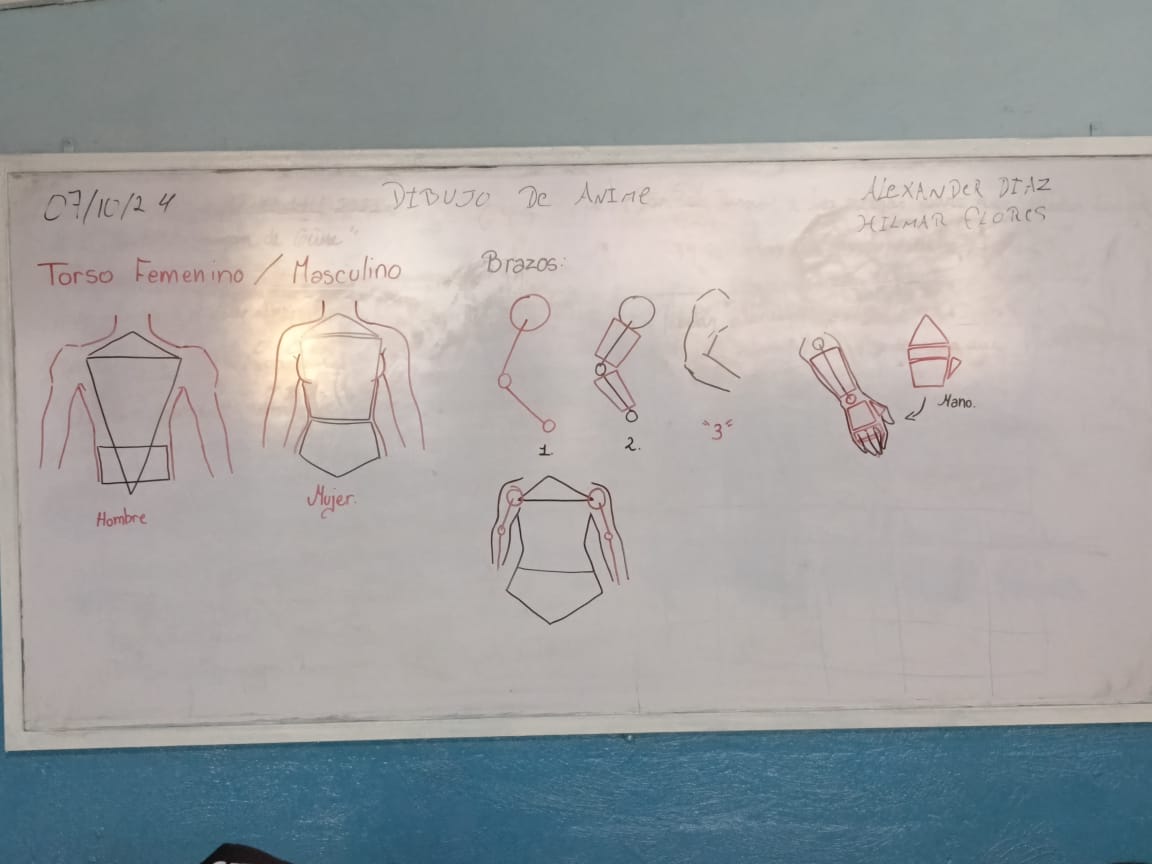 07/10/24
DIBUJO DE ANIME
ALEXANDER DIAZ
HILMAR FLORES
Torso Femenino / Masculino
Brazos:
Hombre
Mujer.
1.
2.
"3"
Mano.